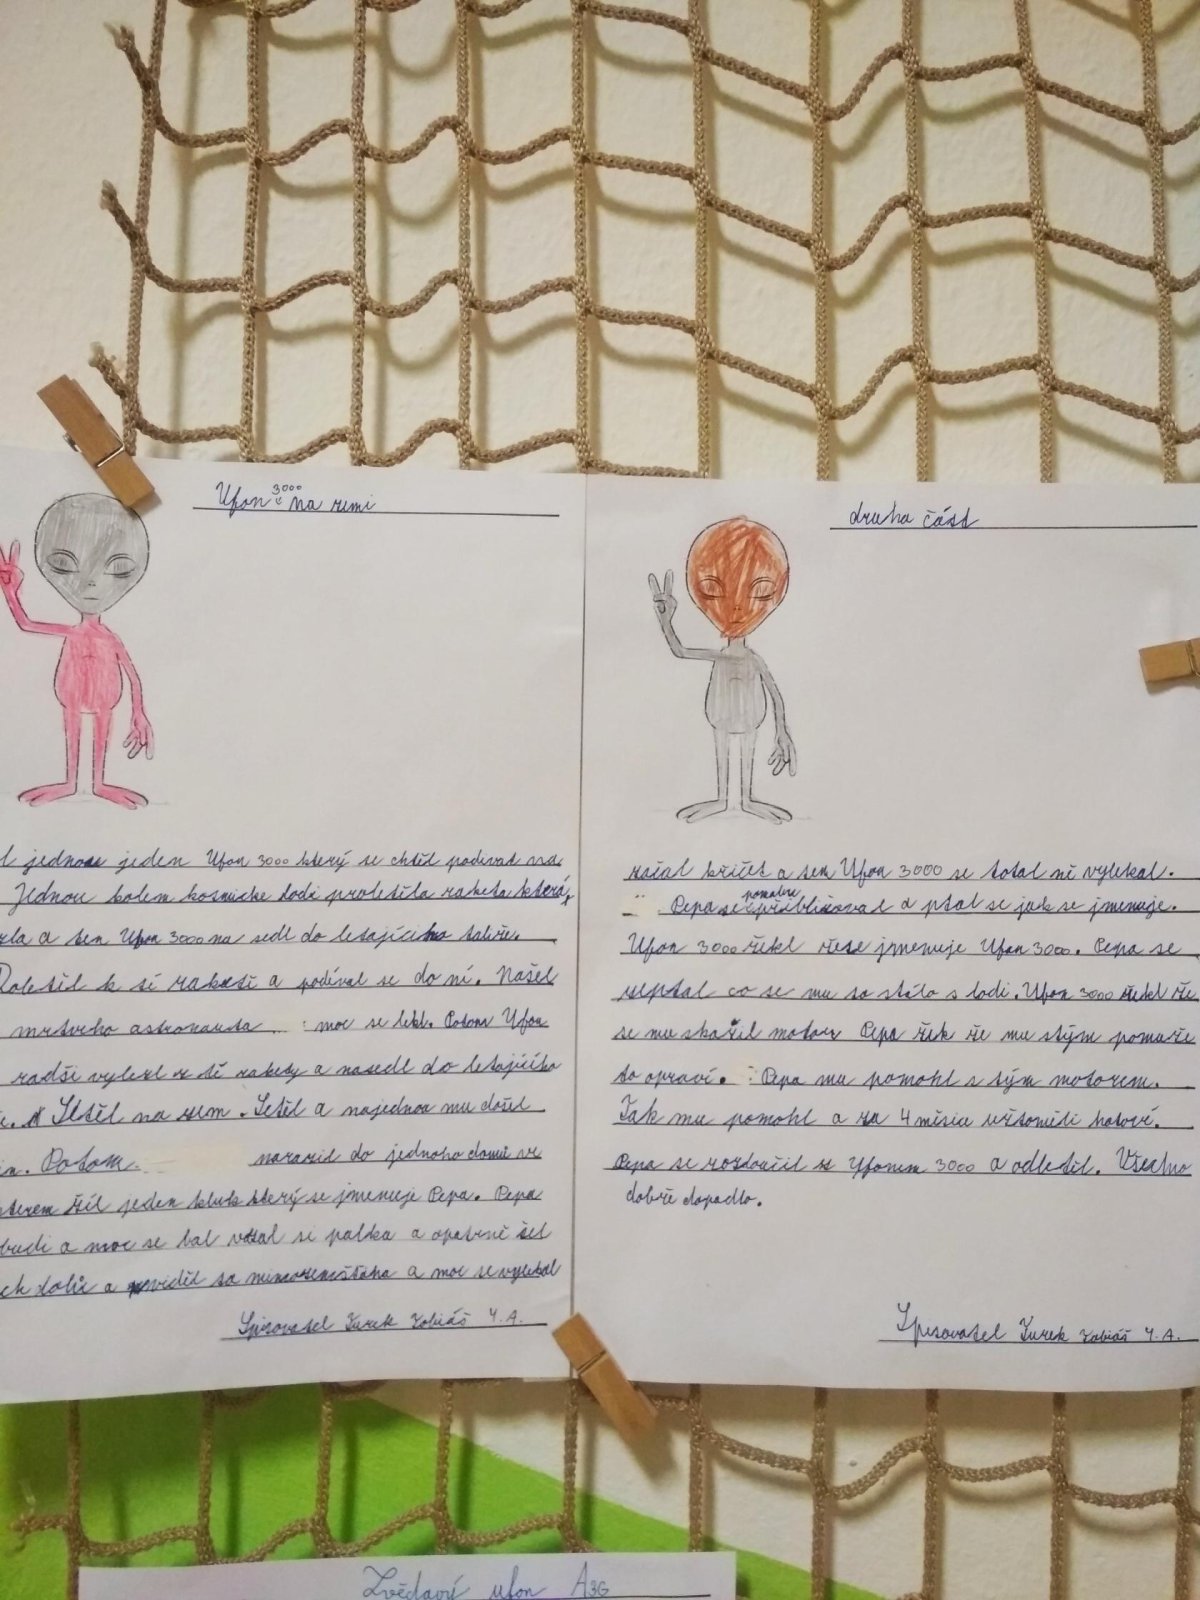 Ufon 3000 na zemi
l jednou jeden Ufon 3000 který se chtěl podívat na
Jednou kolem kosmické lodi proletěla raketa která,
zla a ten Ufon 3000 na sedl do letajícího talíře.
Doletěl k tí raketě a podíval se do ní. Našel
mrtvího astronauta moc se lekl. Potom Ufon
radši vylezl z tě rakety a nasedl do letajícího
Letěl na zem. Letěl a najednou mu došel
Potom narazil do jednoho domu ve
kterem žil jeden kluk který se jmenuje Pepa. Pepa
budi a moc se bal vzal si palka a opatrně šel
dolů a viděl to mimozemštana a moc se vylekal
Spisovatel Turek Tobiáš 4. A.
druha část
začal křičet a ten Ufon 3000 se total ně vylekal.
Pepa se pomalu přibližoval a ptal se jak se jmenuje.
Ufon 3000 řekl žese jmenuje Ufon 3000. Pepa se
zeptal co se mu to stálo s lodi. Ufon 3000 řekl že
se mu skazil motor Pepa řek že mu stým pomuže
to opraví. Pepa mu pomohl s tým motorem.
Tak mu pomohl a za 4 měsíce užtoměli hotoví.
Pepa se rozloučil s Ufonem 3000 a odletěl. Všechno
dobře dopadlo.
Spisovatel Turek Tobiáš 4. A.
Zvědavý ufon A3G